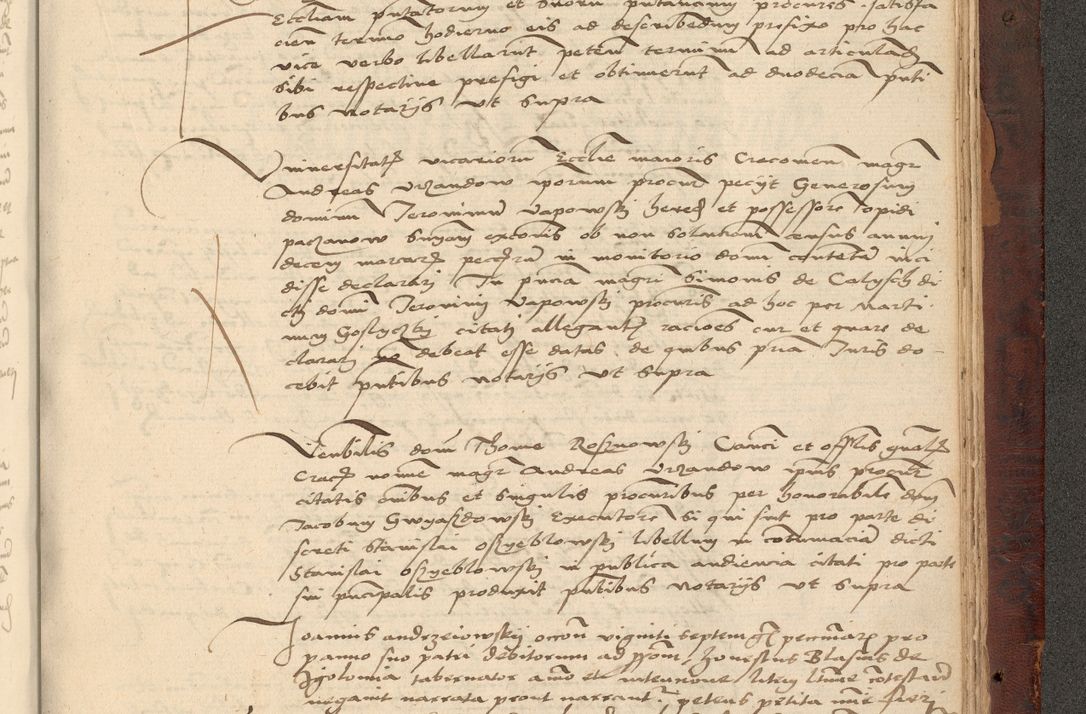 Eccliam putatorum et suorum putanam procuris satisfa
cien termino hodierno eis ad describedum prefixo pro hac
vice verbo libellarunt peten terminum ad articulad
sibi respective prefigi et obtinuerunt ad duodecia pnti
bus notarijs ut supra
Universitatis vicariorum Ecclie maioris Cracovien magr
Andreas Urzandow iporum procur pecijt Generosum
dominum Jeronimum Vapowskj hered et possessore opidi
paczanow Suam excois ob non solutionem census annuj
decem marcar peccra in monitorio domi conteta inci
disse declararj In pncia magri Simonis de Calysch di
cti domi Jeronimj Vapowskj procuris ad hoc per Marti
num Goslyczkj citatj allegant racioes cur et quare de
clararj no debeat esse datas de quibus pna Juris do
cebit pntibus notarijs ut supra
Venbilis dom Thome Rosznowskj Canci et offlis gnalis
Craco nomine magr Andreas Urzandow ipius procur
citatis omibus et singulis procuribus per honorabile dom
Jacobum Gwyaszdowskj Executore si qui sint pro parte di
screti Stanislai oszyeblowskj libellum in cotumacia dicti
Stanislai oszyeblowskj in publica audiencia citati pro parte
sui pncipalis produxit pntibus notarijs ut supra
Joannis andrzeiowskij occon viginti septem gr peccniar pro
panno suo patri debitorum ad pson honestus Blasius de
Igolomia tabernator animo et intencione litem lime cotestand
negavit narrata prout narrant petens petita mie fieri